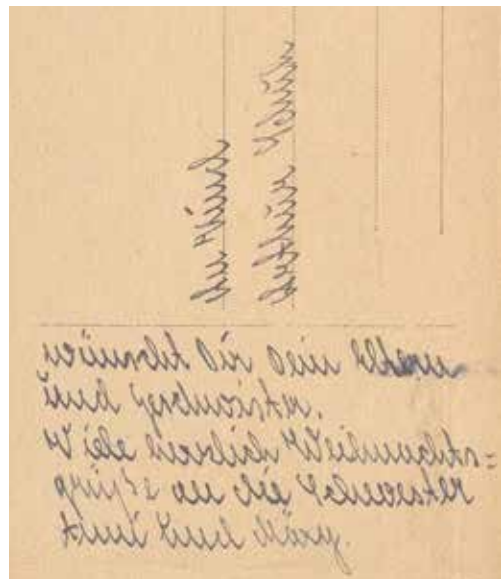 An Kind
Arthur
wünscht Dir Dein Eltern
und Geschwister.
Viele herzlich Weihnachts=
grüße an die Schwester
und